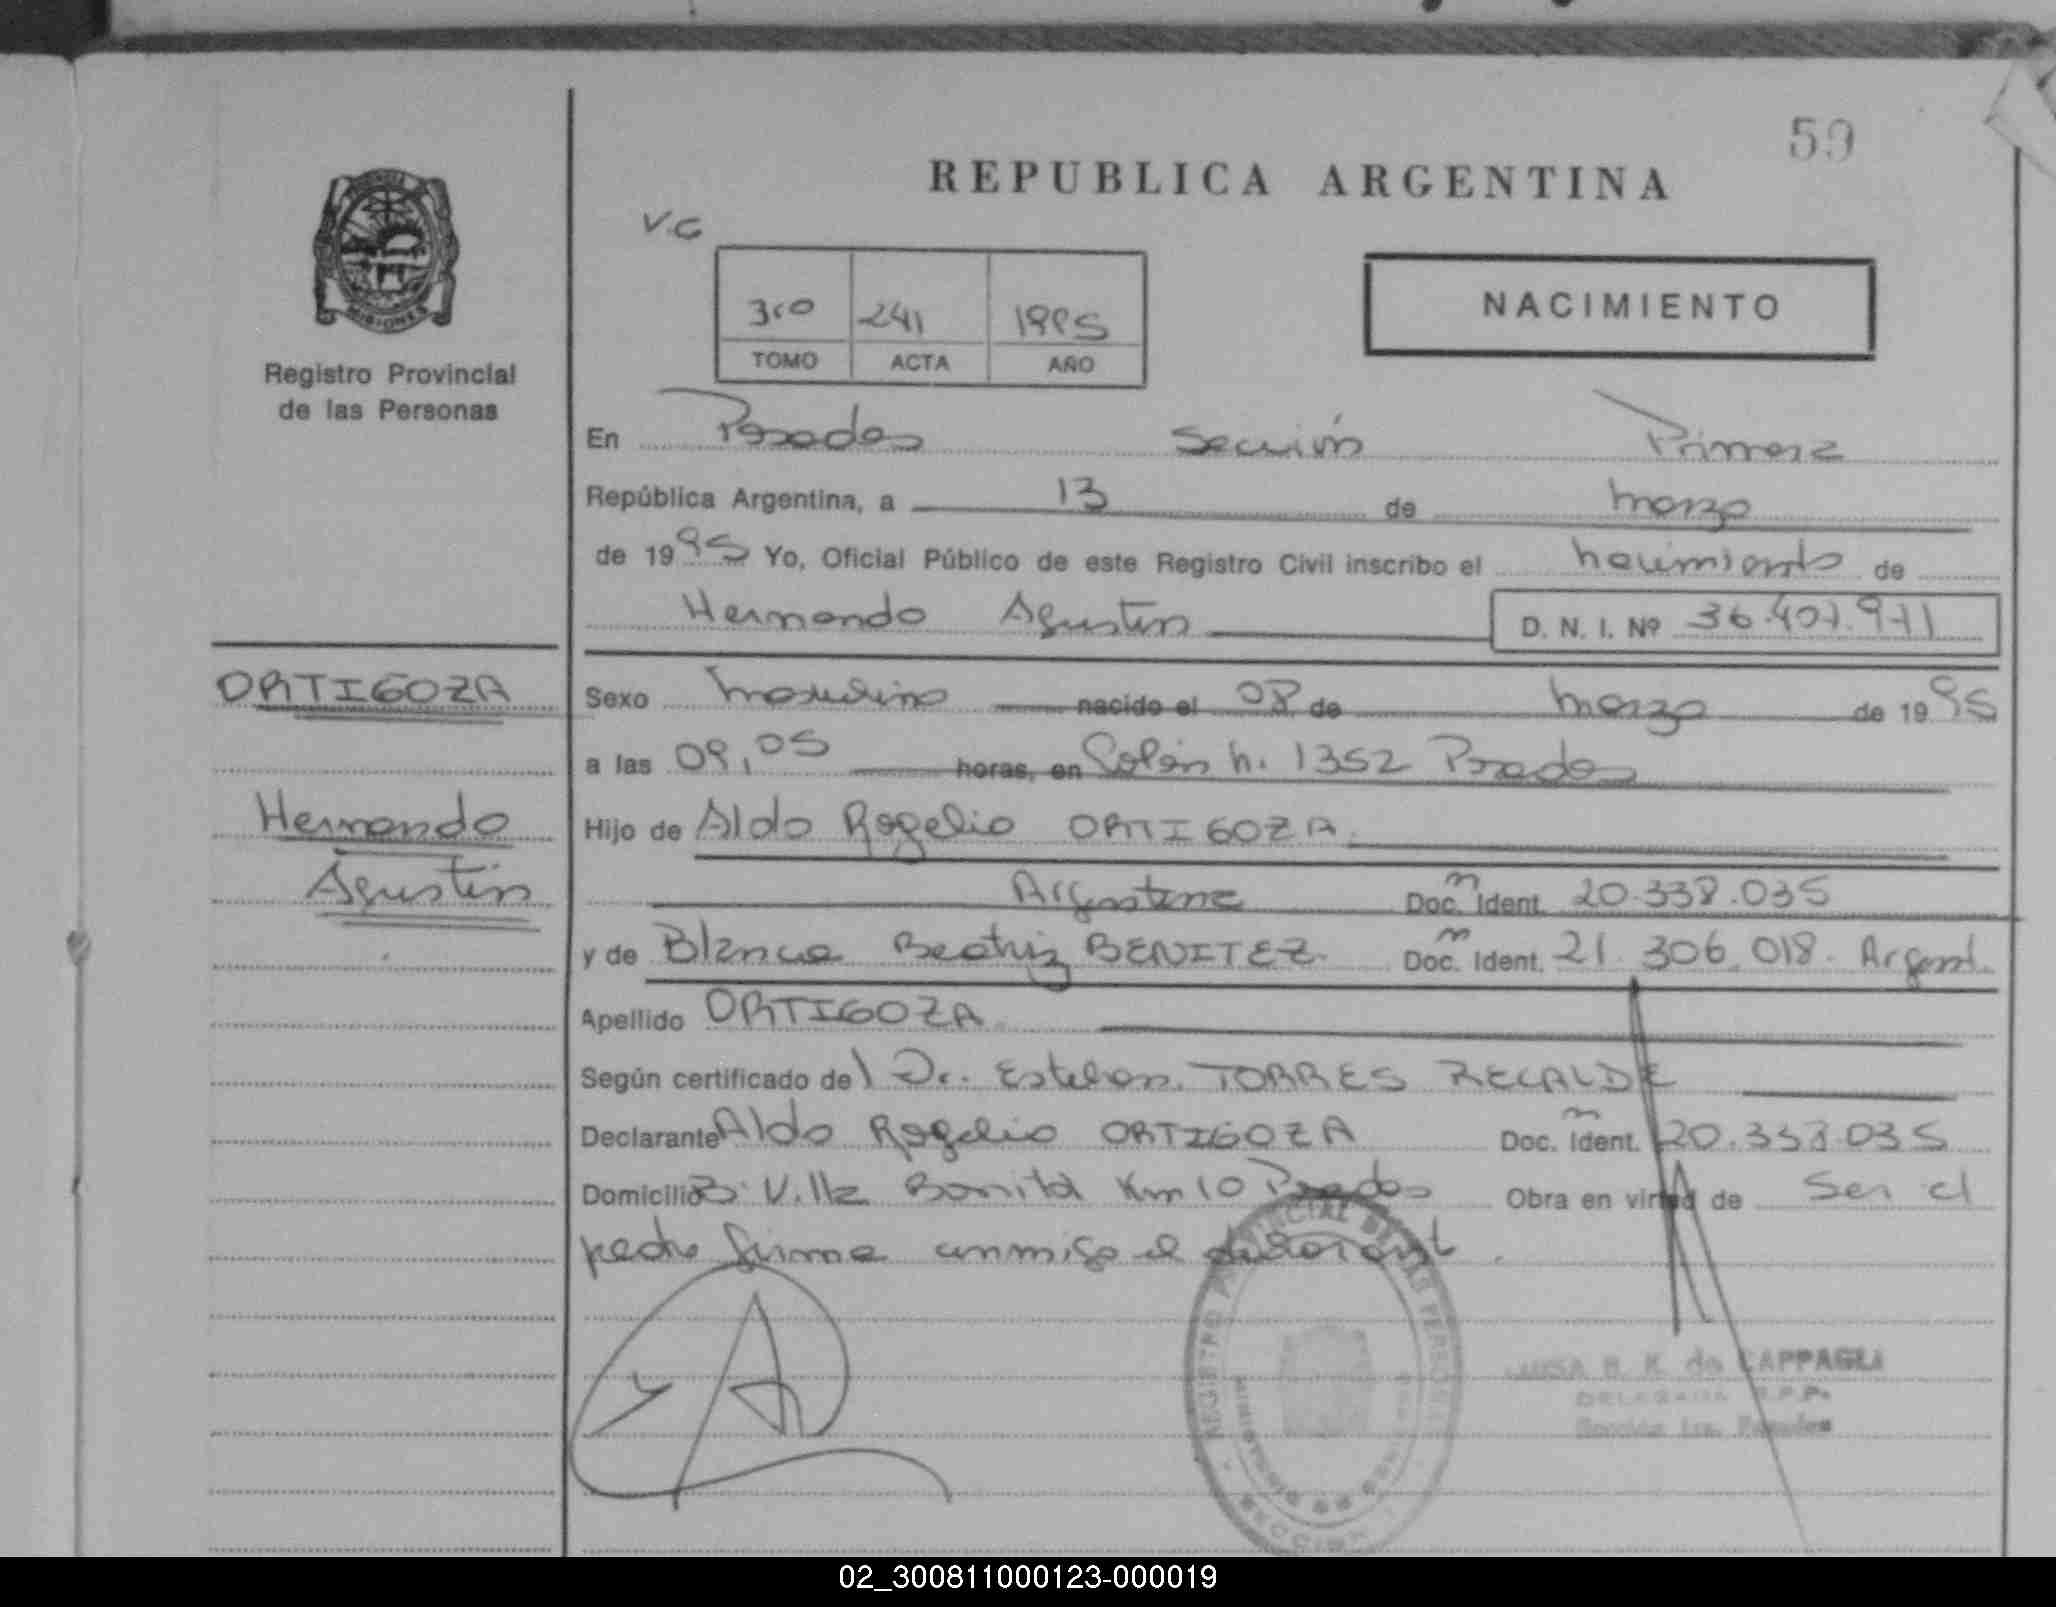 59
REPUBLICA ARGENTINA
V.G
3ro 241 1995
TOMO ACTA AÑO
NACIMIENTO
MISIONES
Registro Provincial
de las Personas
En Posadas Sección Primera
República Argentina, a 13 de marzo
de 1995 Yo, Oficial Público de este Registro Civil inscribo el nacimiento de
Hernando Agustin D. N. I. Nº 36.407.971
ORTIGOZA
Hernando
Agustin
Sexo masculino nacido el 08 de marzo de 1995
a las 09,05 horas, en Colón n. 1352 Posadas
Hijo de Aldo Rogelio ORTIGOZA
Argentina Doc. Ident. 20.338.035
y de Blanca Beatriz BENITEZ Doc. Ident. 21.306.018. Argent.
Apellido ORTIGOZA
Según certificado del Dr. Esteban TORRES RECALDE
Declarante Aldo Rogelio ORTIGOZA Doc. Ident. 20.338.035
Domicilio B: Villa Bonita Km 10 Posadas Obra en virtud de Ser el
padre firma conmigo el declarant.
REGISTRO PROVINCIAL DE LAS PERSONAS
MINISTERIO DE GOBIERNO
SECCION
LUISA R. K. de CAPPAGLI
DELEGADA R.P.P.
Sección 1ra. Posadas
02_300811000123-000019